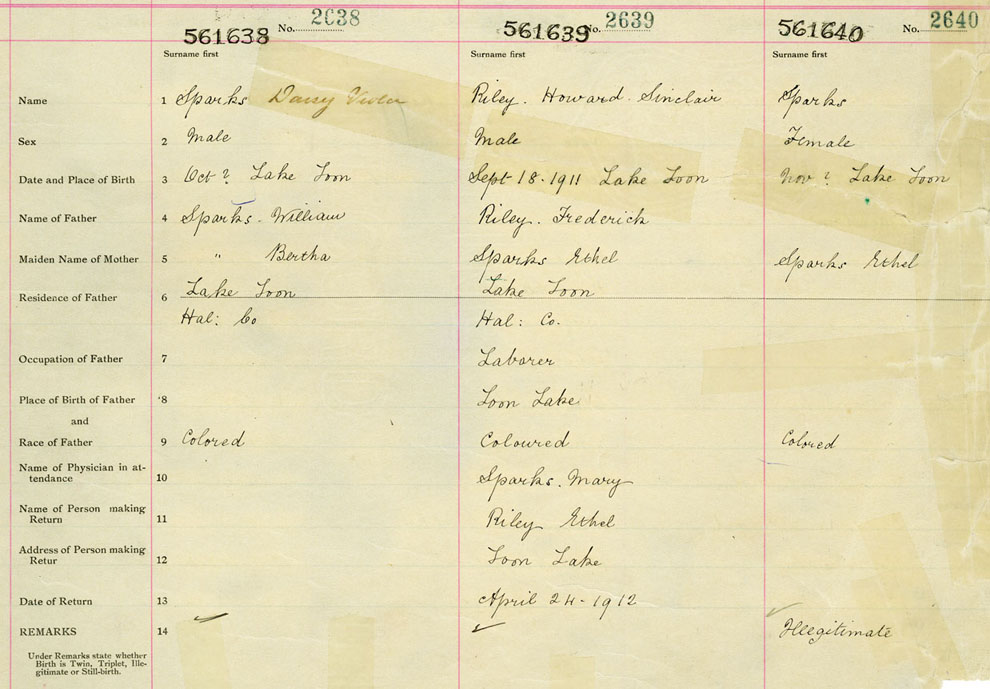 561638 No. 2638 561639 No. 2639 561640 No. 2640
Surname first Surname first Surname first
Name 1 Sparks Daisy Viola Riley. Howard. Sinclair Sparks
Sex 2 Male Male Female
Date and Place of Birth 3 Oct ? Lake Loon Sept 18-1911 Lake Loon Nov ? Lake Loon
Name of Father 4 Sparks. William Riley. Frederick
Maiden Name of Mother 5 " Bertha Sparks Ethel Sparks Ethel
Residence of Father 6 Lake Loon Lake Loon
Hal: Co Hal: Co.
Occupation of Father 7 Laborer
Place of Birth of Father 8 Loon Lake
and
Race of Father 9 Colored Coloured Colored
Name of Physician in at-
tendance 10 Sparks. Mary
Name of Person making
Return 11 Riley Ethel
Address of Person making
Retur 12 Loon Lake
Date of Return 13 April 24-1912
REMARKS 14 Illegitimate
Under Remarks state whether
Birth is Twin, Triplet, Ille-
gitimate or Still-birth.